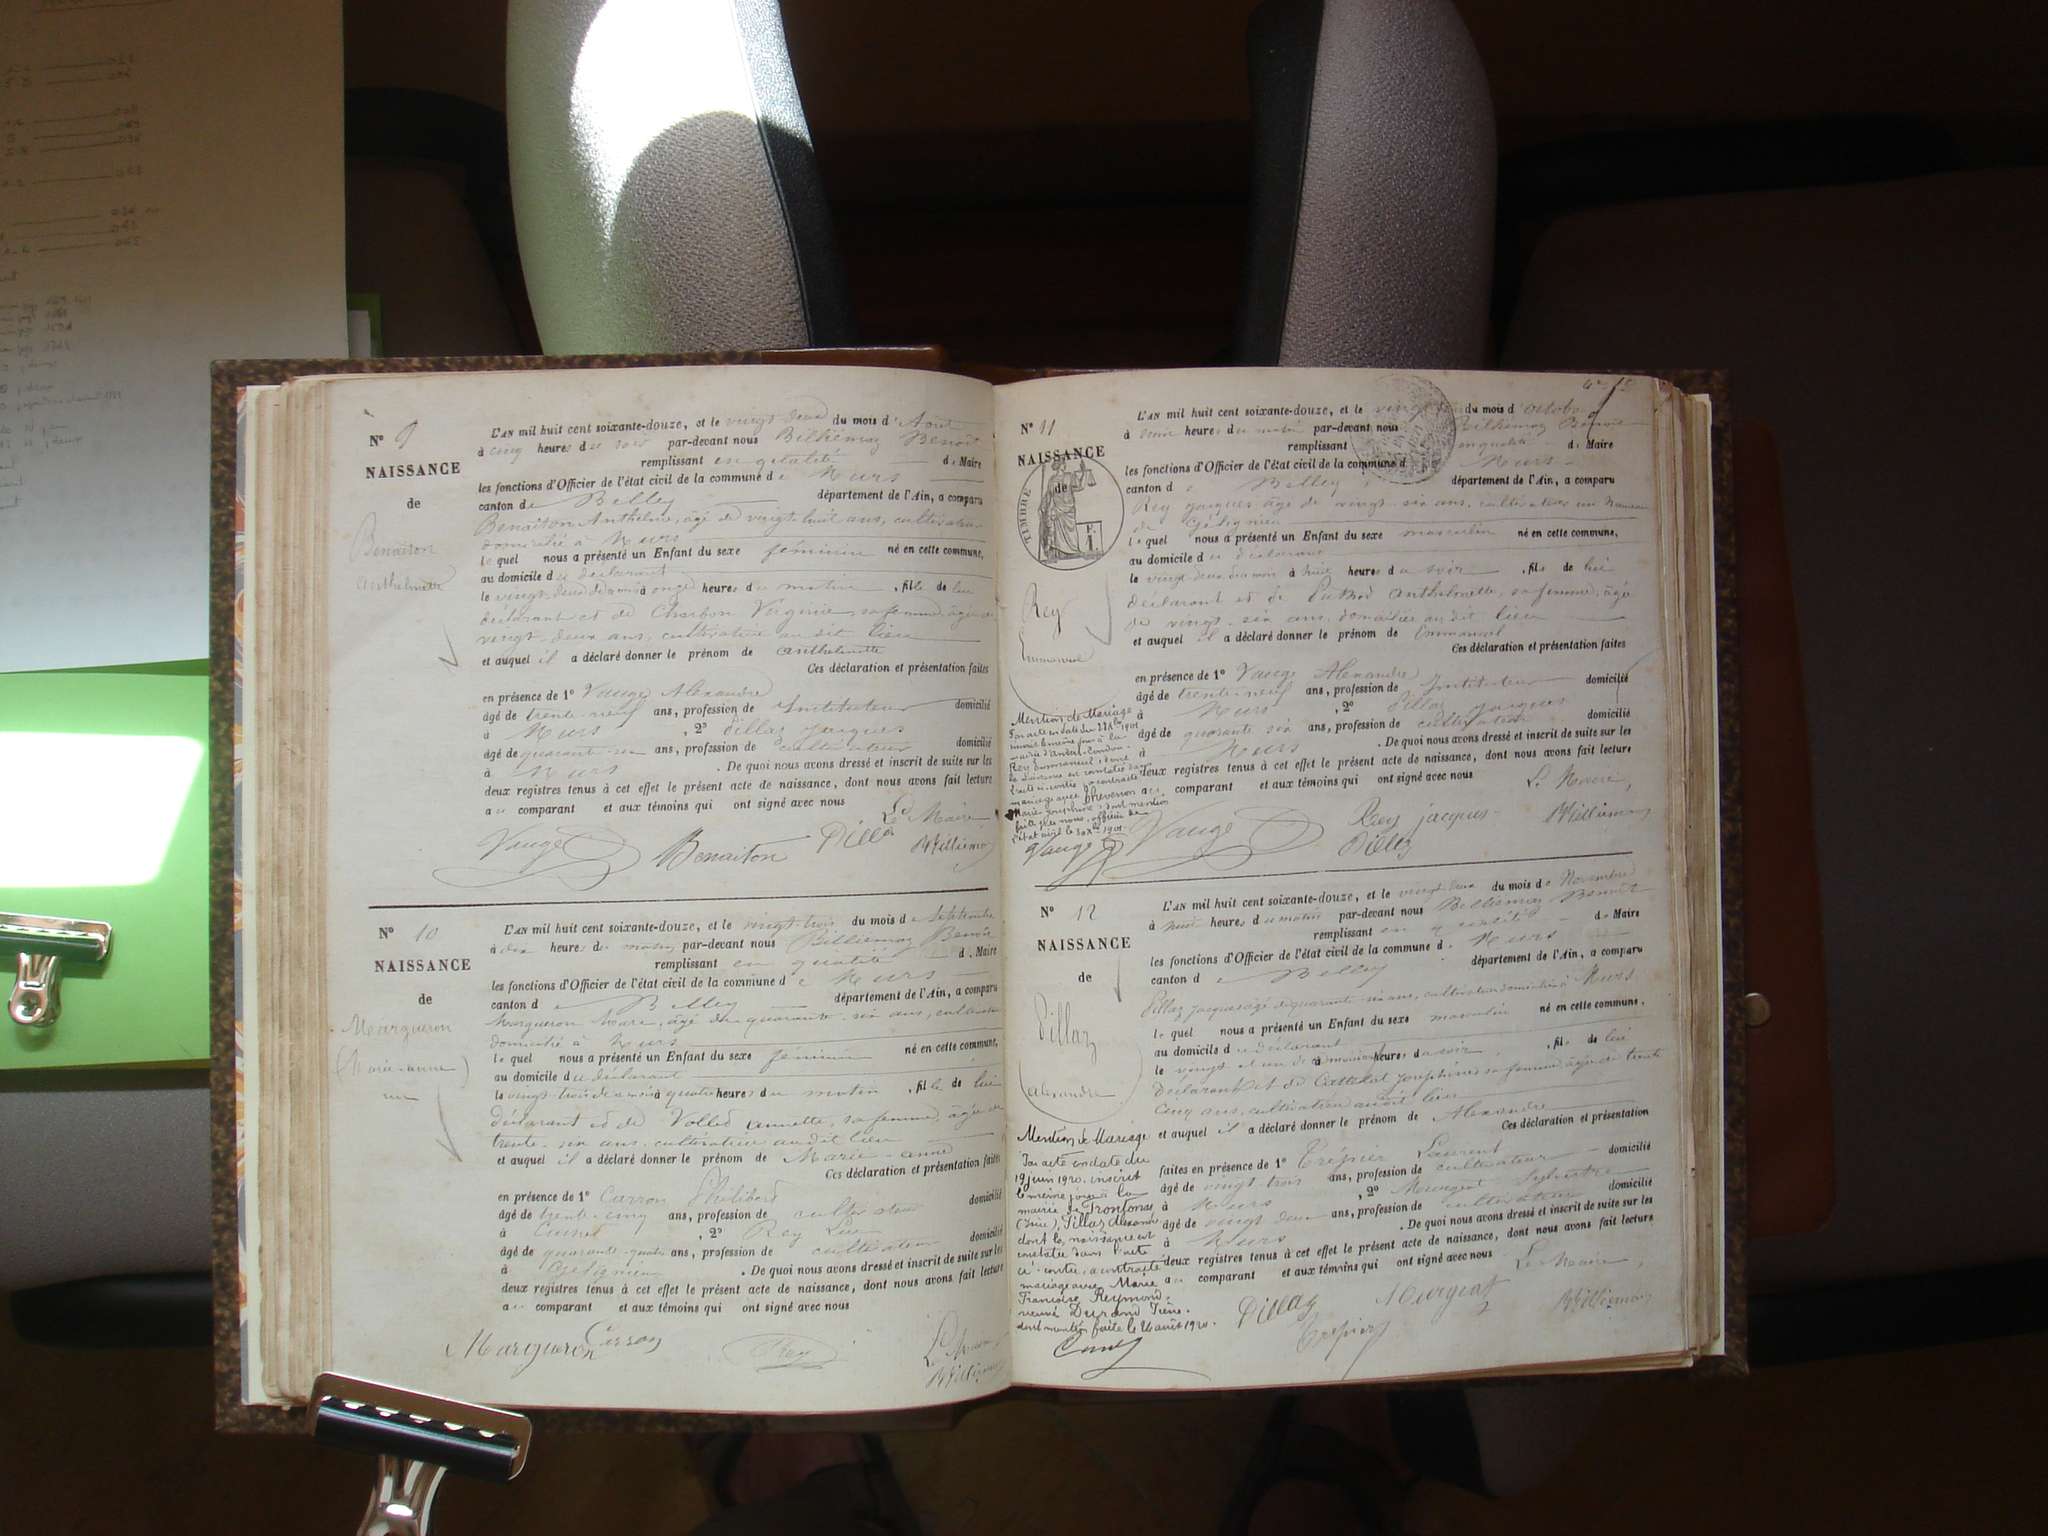 N° 9
NAISSANCE
de
Benaiton
Anthelmette
L'AN mil huit cent soixante-douze, et le vingt-deux du mois d'Août
à cinq heures du soir par-devant nous Billiemaz Benoit
remplissant en qualité de Maire
les fonctions d'Officier de l'état civil de la commune de Murs
canton de Belley département de l'Ain, a comparu
Benaiton Anthelme, âgé de vingt-huit ans, cultivateur
domicilié à Murs
lequel nous a présenté un Enfant du sexe féminin né en cette commune,
au domicile du déclarant
le vingt-deux du mois à onze heures du matin, fille de lui
déclarant et de Charbon Virginie, sa femme, âgée de
vingt-deux ans, cultivatrice au dit lieu
et auquel il a déclaré donner le prénom de Anthelmette
Ces déclaration et présentation faites
en présence de 1° Vauge Alexandre
âgé de trente-neuf ans, profession de Instituteur domicilié
à Murs, 2° Pillaz Jacques
âgé de quarante-six ans, profession de cultivateur domicilié
à Murs. De quoi nous avons dressé et inscrit de suite sur les
deux registres tenus à cet effet le présent acte de naissance, dont nous avons fait lecture
au comparant et aux témoins qui ont signé avec nous
Le Maire
Vauge Benaiton Pillaz Billiemaz
N° 10
NAISSANCE
de
Margueron
(Marie-anne)
L'AN mil huit cent soixante-douze, et le vingt-trois du mois de Septembre
à dix heures du matin par-devant nous Billiemaz Benoit
remplissant en qualité de Maire
les fonctions d'Officier de l'état civil de la commune de Murs
canton de Belley département de l'Ain, a comparu
Margueron Marc, âgé de quarante-six ans, cultivateur
domicilié à Murs
lequel nous a présenté un Enfant du sexe féminin né en cette commune,
au domicile du déclarant
le vingt-trois de ce mois à quatre heures du matin, fille de lui
déclarant et de Vollet Annette, sa femme, âgée de
trente-six ans, cultivatrice au dit lieu
et auquel il a déclaré donner le prénom de Marie-anne
Ces déclaration et présentation faites
en présence de 1° Curron Philibert
âgé de trente-cinq ans, profession de cultivateur domicilié
à, 2° Rey
âgé de quarante-quatre ans, profession de cultivateur domicilié
à Gélignieu. De quoi nous avons dressé et inscrit de suite sur les
deux registres tenus à cet effet le présent acte de naissance, dont nous avons fait lecture
au comparant et aux témoins qui ont signé avec nous
Le Maire
Margueron Rey Billiemaz
N° 11
NAISSANCE
de
TIMBRE
Rey
Emmanuel
L'AN mil huit cent soixante-douze, et le vingt du mois d'octobre
à heures du matin par-devant nous Billiemaz Benoit
remplissant en qualité de Maire
les fonctions d'Officier de l'état civil de la commune de Murs
canton de Belley, département de l'Ain, a comparu
Rey Jacques âgé de vingt-six ans, cultivateur au hameau
de Gélignieu
lequel nous a présenté un Enfant du sexe masculin né en cette commune,
au domicile du déclarant
le vingt-deux du mois à huit heures du soir, fils de lui
déclarant et de Anthelmette, sa femme, âgée
de vingt-six ans, domiciliés au dit lieu
et auquel il a déclaré donner le prénom de Emmanuel
Ces déclaration et présentation faites
en présence de 1° Vauge Alexandre
âgé de trente-neuf ans, profession de Instituteur domicilié
à Murs, 2° Pillaz Jacques
âgé de quarante-six ans, profession de cultivateur domicilié
à Murs. De quoi nous avons dressé et inscrit de suite sur les
deux registres tenus à cet effet le présent acte de naissance, dont nous avons fait lecture
au comparant et aux témoins qui ont signé avec nous
Le Maire,
Vauge Rey Jacques Billiemaz
Pillaz
Mention de Mariage
Par acte en date du 1901
inscrit le même jour à la
Rey Emmanuel, dont
la naissance est constatée
ci-contre, a contracté
mariage avec Chevenon
Marie Joséphine, dont mention
faite par nous, officier de
l'état civil le 1901
Vauge
N° 12
NAISSANCE
de
Pillaz
(alexandre)
L'AN mil huit cent soixante-douze, et le vingt-deux du mois de Novembre
à huit heures du matin par-devant nous Billiemaz Benoit
remplissant en qualité de Maire
les fonctions d'Officier de l'état civil de la commune de Murs
canton de Belley département de l'Ain, a comparu
Pillaz Jacques âgé de quarante-six ans, cultivateur domicilié à Murs
lequel nous a présenté un Enfant du sexe masculin né en cette commune,
au domicile du déclarant
le vingt et un de ce mois à heures du soir, fils de lui
Déclarant et de Joséphine sa femme, âgée de trente
cinq ans, cultivatrice au dit lieu
et auquel il a déclaré donner le prénom de Alexandre
Ces déclaration et présentation
faites en présence de 1° Trépier Laurent domicilié
âgé de vingt-trois ans, profession de cultivateur
à Murs, 2° Murgeat Sylvestre
âgé de vingt-deux ans, profession de cultivateur domicilié
à Murs. De quoi nous avons dressé et inscrit de suite sur les
deux registres tenus à cet effet le présent acte de naissance, dont nous avons fait lecture
au comparant et aux témoins qui ont signé avec nous
Le Maire,
Pillaz Murgeat Billiemaz
Trépier
Mention de Mariage
Par acte en date du
19 juin 1920 inscrit
le même jour à la
mairie de Frontonas
(Isère), Pillaz Alexandre
dont la naissance est
constatée dans l'acte
ci-contre, a contracté
mariage avec Marie
Françoise Reymond,
veuve Durand
dont mention faite le 26 août 1920.